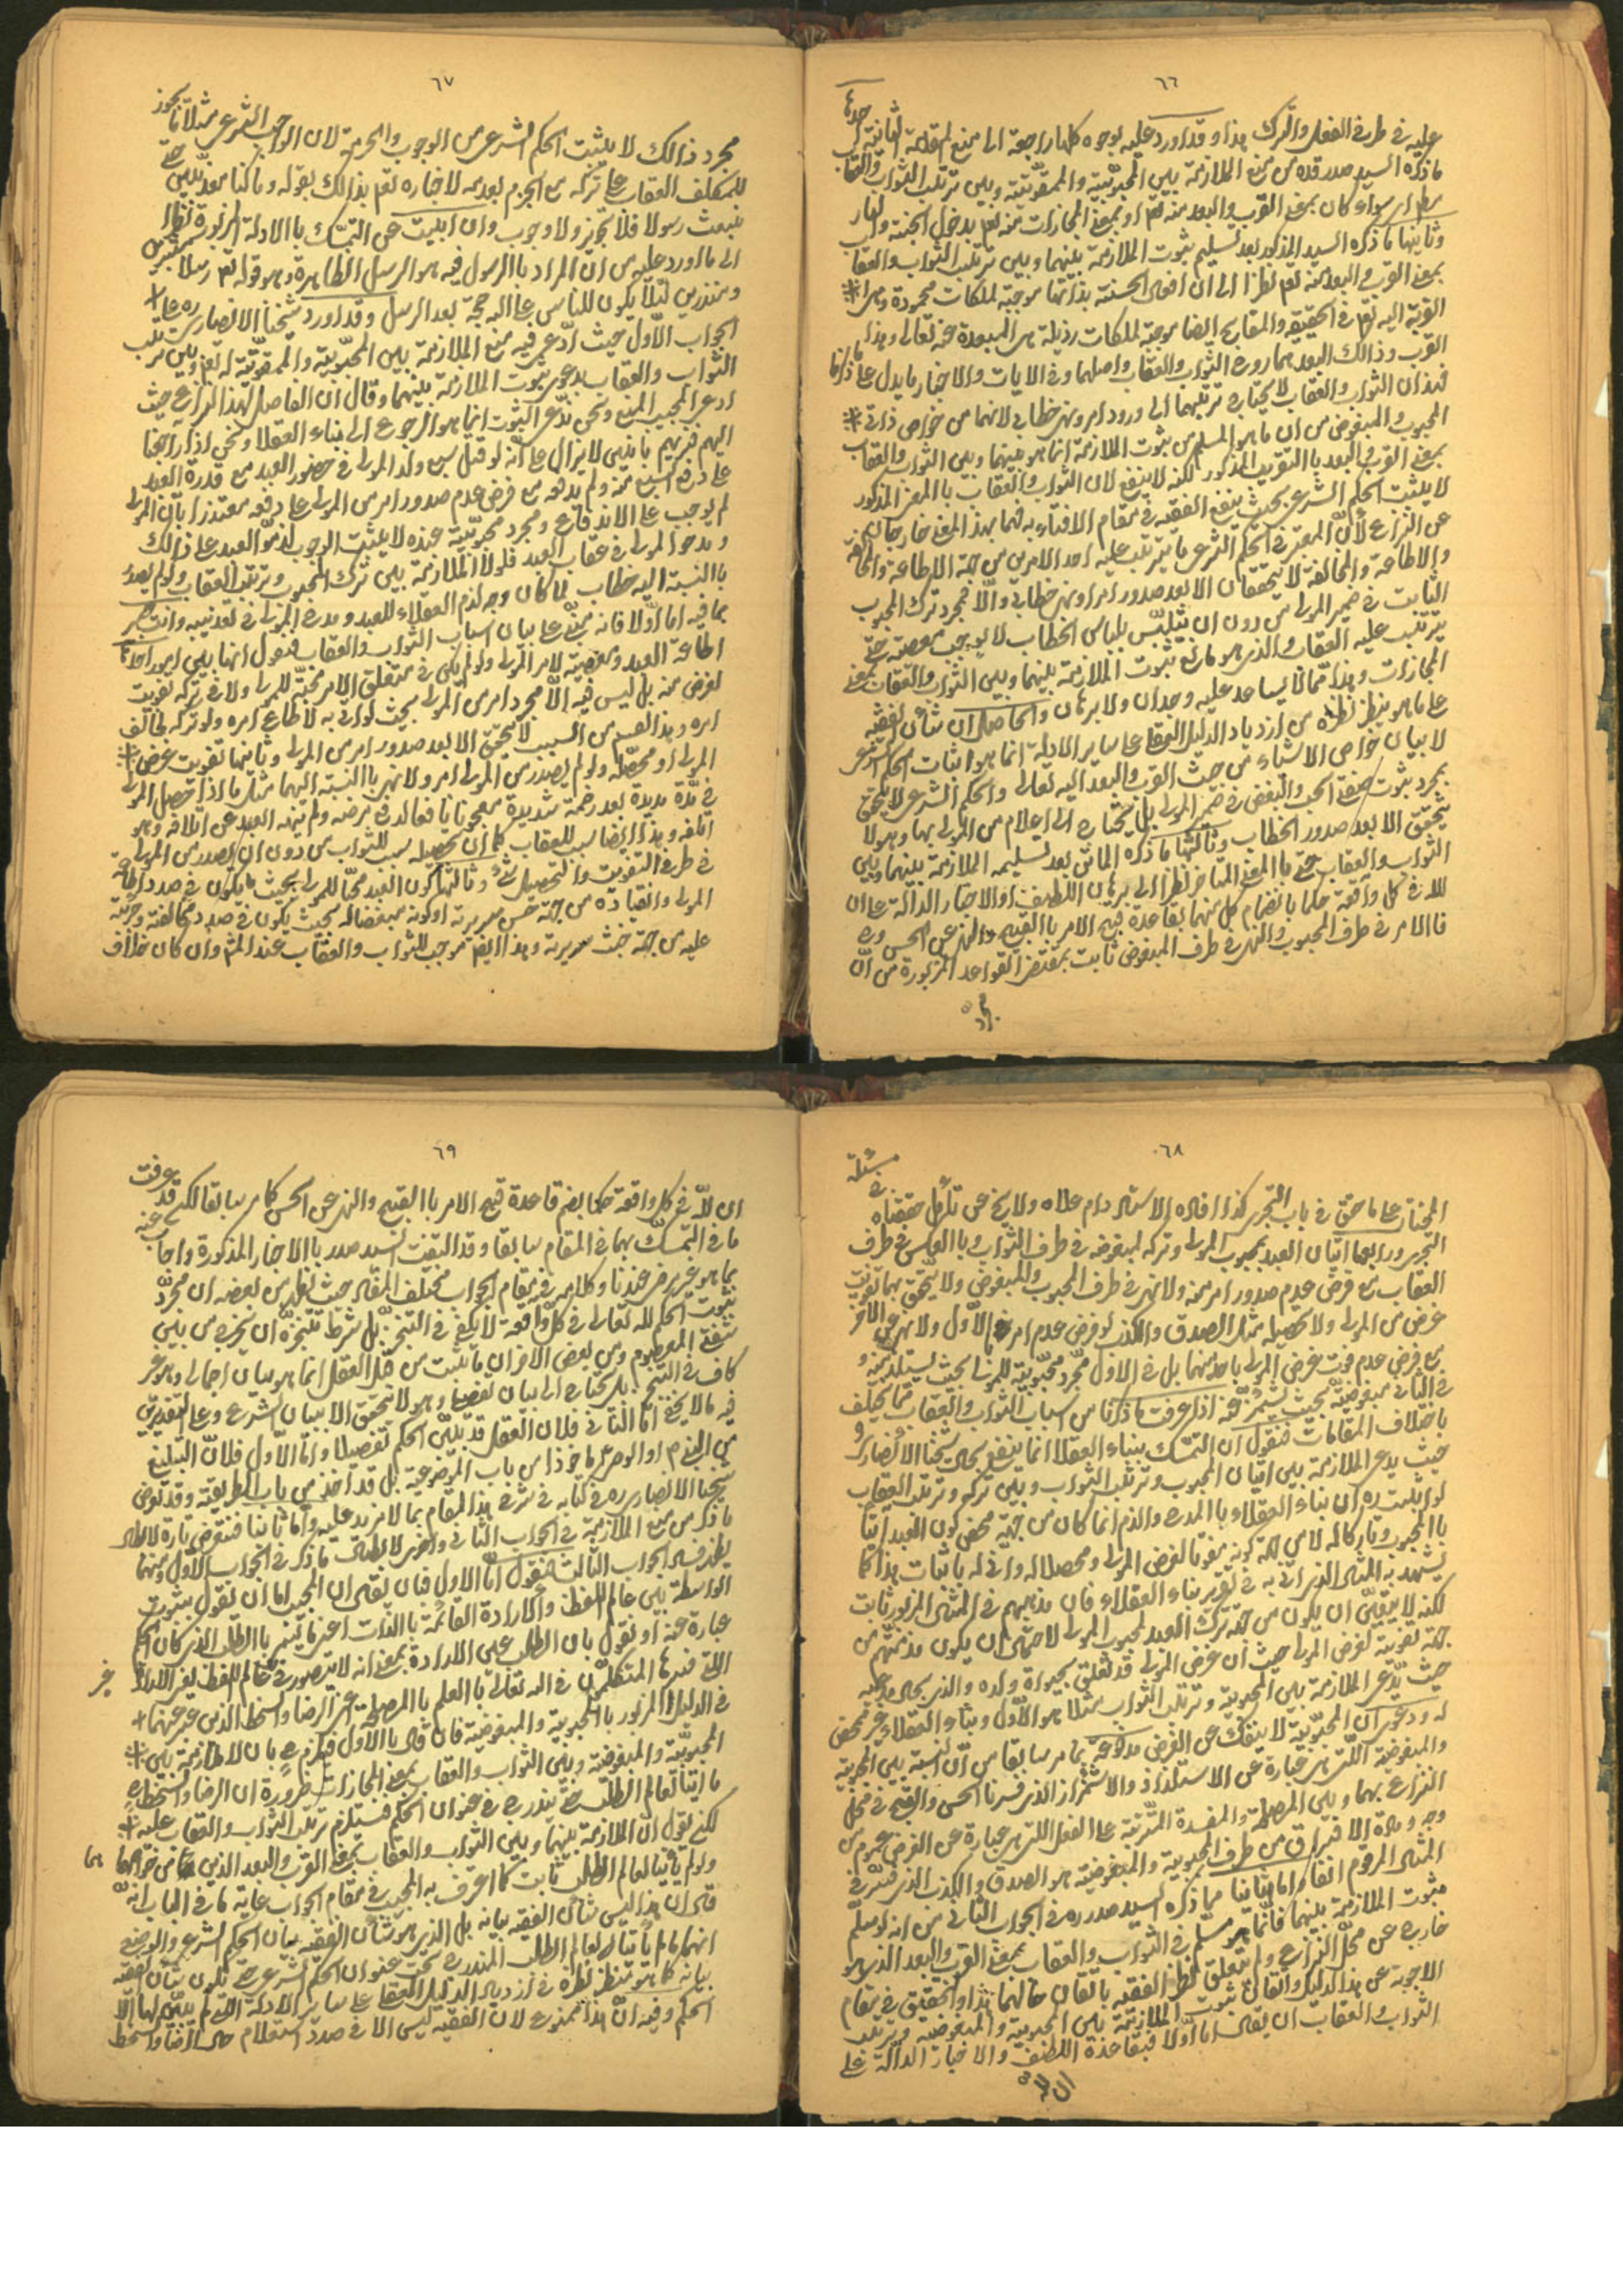 ٦٦
عليه في طرفي الفعل والترك هذا وقد اورد عليه بوجوه كلها راجعة الى منع المقدمة الثانية احدها
ما ذكره السيد صدر قده من منع الملازمة بين المحبوبية والممقوتية وبين ترتب الثواب والعقاب
سواء كان بمعنى القرب والبعد منه تعم او بمعنى المجازات منه تعم بدخول الجنة والنار
وثانيها ما ذكره السيد المذكور بعد تسليم ثبوت الملازمة بينهما وبين ترتب الثواب والعقاب
بمعنى القرب والبعد منه تعم نظرا الى ان افعال الحسنة بذاتها موجبة لملكات محمودة وهي
القربة اليه تعم في الحقيقة والمقابح ايضا موجبة لملكات رذيلة هي المبعدة عنه تعالى وهذا
القرب وذالك البعد هما روح الثواب والعقاب واصلهما وفي الايات والاخبار ما يدل على ما ذكرنا
فهذان الثواب والعقاب لا يحتاج ترتبهما الى ورود امر ونهي خطابي لانهما من خواص ذاتي
المحبوب والمبغوض من ان ما هو المسلم من ثبوت الملازمة انما هو بينهما وبين الثواب والعقاب
بمعنى القرب والبعد بالتقريب المذكور لكنه لا ينفع لان الثواب والعقاب بالمعنى المذكور
لا يثبت الحكم الشرعي بحيث ينفع الفقيه في مقام الافتاء به فهما بهذا المعنى خارجان
عن النزاع لان المعتبر في الحكم الشرعي ما يترتب عليه احد الامرين من جهة الاطاعة والمخالفة
والاطاعة والمخالفة لا يتحققان الا بعد صدور امر او نهي خطابي والا فمجرد ترك المحبوب
الثابت في ضمير المولى من دون ان يتلبس بلباس الخطاب لا يوجب معصية حتى
يترتب عليه العقاب والذي هو مانع ثبوت الملازمة بينهما وبين الثواب والعقاب بمعنى
المجازات وهذا مما لا يساعد عليه وجدان ولا برهان والحاصل ان شان الفقيه
على ما هو ينظر نظره من ازدياد الدليل العقلي على ساير الادلة انما هو اثبات الحكم الشرعي
لا بيان خواص الاشياء من حيث القرب والبعد اليه تعالى والحكم الشرعي لا يتحقق
بمجرد ثبوت صفتي الحب والبغض في ضمير المولى بل يحتاج الى اعلام من المولى بها وهو لا
يتحقق الا بعد صدور الخطاب وثالثها ما ذكره الماتن بعد تسليمه الملازمة بينهما وبين
الثواب والعقاب حتى بالمعنى المتاخر نظرا الى برهان اللطف او الاخبار الدالة على ان
لله في كل واقعة حكما بانضمام كل منهما بقاعدة قبح الامر بالقبيح والنهي عن الحسن وره
فالامر في طرف المحبوب والنهي في طرف المبغوض ثابت بمقتضى القواعد المزبورة من ان
مجرد
٦٧
مجرد ذالك لا يثبت الحكم الشرعي من الوجوب والحرمة لان الواجب الشرعي مثلا ما يجوز
للمكلف العقاب على تركه مع الجزم بعدمه لاخباره تعم بذالك بقوله وما كنا معذبين حتى
نبعث رسولا فلا تجويز ولا وجوب وان ابيت عن التمسك بالادلة المزبورة نظرا
الى ما اورد عليه من ان المراد بالرسول فيه هو الرسل الظاهرة وهو قوله تعم رسلا مبشرين
ومنذرين لئلا يكون للناس على الله حجة بعد الرسل وقد اورد شيخنا الانصاري ره على
الجواب الاول حيث ادعى فيه منع الملازمة بين المحبوبية والممقوتية له تعم وبين ترتب
الثواب والعقاب بدعوى ثبوت الملازمة بينهما وقال ان الفاصل لهذا النزاع حيث
ادعى المجيب المنع ونحن ندعي الثبوت انما هو الرجوع الى بناء العقلاء ونحن اذا راجعنا
اليهم نريهم بانين لا يزال على انه لو قتل سبع ولد المولى في حضور العبد مع قدرة العبد
على دفع السبع عنه ولم يدفعه مع فرض عدم صدور امر من المولى على دفعه معتذرا بان المولى
لم يوجب على الاندفاع ومجرد محبوبيته عنده لا يثبت الوجوب لذموا العبد على ذالك
ومدحوا المولى في عقاب العبد فلولا الملازمة بين ترك المحبوب وترتب العقاب ولو لم يصدر
بالنسبة اليه خطاب لما كان وجه لذم العقلاء للعبد ومدح المولى في تعذيبه وانت خبير
بما فيه اما اولا فانه مبني على بيان اسباب الثواب والعقاب فنقول انها بين امور احدها
اطاعة العبد ومعصيته لامر المولى ولو لم يكن في متعلق الامر محبة للمولى ولا في تركه تفويت
لغرض منه بل ليس فيه الا مجرد امر من المولى بحيث لو اتى به لاطاع امره ولو تركه لخالف
امره وهذا القسم من السبب لا يتحقق الا بعد صدور امر من المولى وثانيها تفويت غرض
المولى او محصله ولو لم يصدر من المولى امر ولا نهي بالنسبة اليهما مثل ما اذا حصل المولى
في مدة مديدة بعد زحمة شديدة معجونا نافعا لدفع مرضه ولم ينه العبد عن اتلافه وهو
اتلفه وهذا ايضا سبب للعقاب كما ان تحصيله سبب للثواب من دون ان يصدر من المولى
في طرفي التفويت والتحصيل شئ وثالثها كون العبد محبا للمولى بحيث يكون في صدد اطاعة
المولى وانقياده من جهة حسن سريرته او كونه مبغضا له بحيث يكون في صدد مخالفته وجرئته
عليه من جهة خبث سريرته وهذا ايضم موجب للثواب والعقاب عند الشم وان كان خلاف
٦٨
المختار على ما حقق في باب التجري كذا افاده الاستاد دام علاه ولا يخ عن تامل حققناه في مسئلة
التجري ورابعها اتيان العبد بمحبوب المولى وتركه لمبغوضه في طرف الثواب وبالعكس في طرف
العقاب مع فرض عدم صدور امر منه ولا نهي في طرف المحبوب والمبغوض ولا يتحقق بهما تفويت
غرض من المولى ولا تحصيله مثل الصدق والكذب لو فرض عدم امر في الاول ولا نهي عن الاخر
مع فرض عدم فوت غرض المولى باحد منهما بل في الاول مجرد محبوبية للمولى بحيث يستلذ منه و
في الثاني مبغوضية بحيث يشمئز عنه اذا عرفت ما ذكرنا من اسباب الثواب والعقاب مما يختلف
باختلاف المقامات فنقول ان التمسك ببناء العقلاء انما ينفع بحال شيخنا الانصاري ره
حيث يدعي الملازمة بين اتيان المحبوب وترتب الثواب وبين تركه وترتب العقاب
لو اثبت ره ان بناء العقلاء بالمدح والذم انما كان من جهة محض كون العبد اتيا
بالمحبوب وتاركا له لا من جهة كونه مفوتا لغرض المولى ومحصلا له واني له باثبات هذا كما
يشهد به المثال الذي اتى به في تقرير بناء العقلاء فان مذمتهم في المثال المزبور ثابت
لكنه لا يتعين ان يكون من جهة ترك العبد لمحبوب المولى لاحتمال ان يكون مذمتهم من
جهة تفويته لغرض المولى حيث ان غرض المولى قد تعلق بحيواة ولده والذي بحال مدعيه
حيث يدعي الملازمة بين المحبوبية وترتب الثواب مثلا هو الاول وبناء العقلاء غير مختص
له ودعوى ان المحبوبية لا ينفك عن الغرض مدفوعة بما مر سابقا من ان النسبة بين المحبوبية
والمبغوضية اللتين هي عبارة عن الاستلذاذ والاشمئزاز الذي فسرنا الحسن والقبح في محل
النزاع بهما وبين المصلحة والمفسدة المترتبة على الفعل اللتين هي عبارة عن الغرض عموم من
وجه ومادة الافتراق من طرف المحبوبية والمبغوضية هو الصدق والكذب الذي فسر في
المثال المرقوم انفا واما ثانيا فما ذكره السيد صدر ره في الجواب الثاني من انه لو سلم
ثبوت الملازمة بينهما فانما هو مسلم في الثواب والعقاب بمعنى القرب والبعد الذي هو
خارج عن محل النزاع ولم يتعلق نظر الفقيه باتقان حالتهما هذا والتحقيق في مقام
الاجوبة عن هذا الدليل والقائل ثبوت الملازمة بين المحبوبية والمبغوضية وترتب
الثواب والعقاب ان يقال اما اولا فبقاعدة اللطف والاخبار الدالة على
ان لله
٦٩
ان لله في كل واقعة حكما بضم قاعدة قبح الامر بالقبيح والنهي عن الحسن كما مر سابقا لكن قد عرفت
ما في التمسك بهما في المقام سابقا وقد التفت السيد صدر بالاخبار المذكورة واجاب عنه
بما هو غير مرضي عندنا وكلامه في مقام الجواب مختلف المقال حيث نقل من بعضه ان مجرد
ثبوت الحكم لله تعالى في كل واقعة لا يكفي في التنجز بل شرط تنجزه ان يخرج من بين
شفتي المعصوم ومن بعض الاخر ان ما يثبت من قبل العقل انما هو بيان اجمالي وهو غير
كاف في التنجز بل يحتاج الى بيان تفصيلي وهو لا يتحقق الا ببيان الشرع وعلى التقديرين
فيه ما لا يخفى اما الثاني فلان العقل قد يبين الحكم تفصيلا واما الاول فلان التبليغ
من النبي ص او الوصي ع ماخوذا من باب الموضوعية بل قد اخذ من باب الطريقية وقد تعرض
شيخنا الانصاري ره في كتابه في شرح هذا المقام بما لا مزيد عليه واما ثانيا فنتعرض تارة لابطال
ما ذكر من منع الملازمة في الجواب الثاني واخرى لابطال ما ذكر في الجواب الاول ومنهما
يظهر فساد الجواب الثالث فنقول اما الاول فبان يقال ان المجيب اما ان نقول بثبوت
الواسطة بين عالم اللفظ والارادة القائمة بالذات اعني ما يسمى بالطلب الذي كان الحكم
عبارة عنه او نقول بان الطلب عين الارادة بمعنى انه لا يتصور في عالم اللفظ غير الارادة
التي فسرها المتكلمون في الله تعالى بالعلم بالمصلحة اعني الرضا والسخط الذين عبر عنهما
في الدليل المزبور بالمحبوبية والمبغوضية فان قال بالاول فيلزم بان لا ملازمة بين
المحبوبية والمبغوضية وبين الثواب والعقاب بمعنى المجازات ضرورة ان الرضا والسخط
ما اتيا لعالم الطلب حتى يندرج في عنوان الحكم فيستلزم ترتب الثواب والعقاب عليه
لكن نقول ان الملازمة بينهما وبين الثواب والعقاب بمعنى القرب والبعد الذين هما من خواصها
ولو لم ياتيا لعالم الطلب ثابت كما اعترف به المجيب في مقام الجواب غاية ما في الباب انه
قال ان هذا ليس شان الفقيه بيانه بل الذي هو شان الفقيه بيان الحكم الشرعي والوضعي
انهما ما لم ياتيا لعالم الطلب المندرج تحت عنوان الحكم الشرعي حتى تكون شان الفقيه
بيانه كما هو ينظر نظره في ازدياد الدليل العقلي على ساير الادلة التي لم يتبين لها الا
الحكم وفيه ان هذا ممنوع لان الفقيه ليس الا في صدد استعلام حال الرضا والسخط